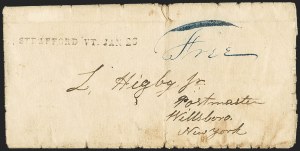 STRAFFORD VT. JAN 26
Free
L. Higby Jr.
Postmaster
Willsboro.
New York